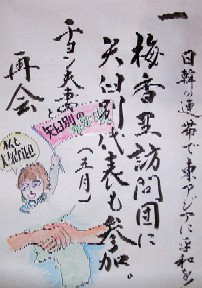 一
日韓の連帯で東アジアに平和を
梅香里訪問団に
矢臼別代表も参加。
(五月)
夫妻と
再会
矢臼別の